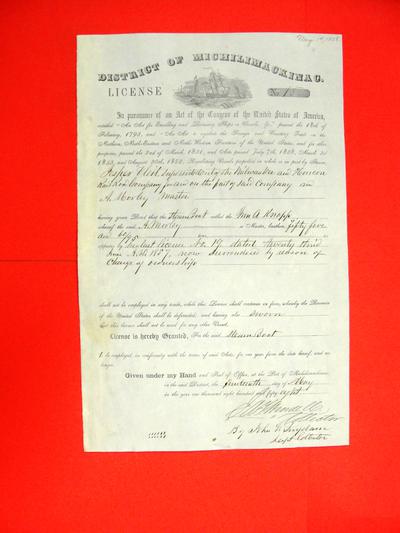 May 14, 1858
DISTRICT OF MICHILIMACKINAC.
LICENSE No. 1
In pursuance of an Act of the Congress of the United States of America,
entitled "An Act for Enrolling and Licensing Ships or Vessels, &c." passed the 18th of
February, 1793, and "An Act to regulate the Foreign and Coasting Trade on the
Northern, North-Eastern and North-Western Frontiers of the United States, and for other
purposes, passed the 2nd of March, 1831, and Acts passed July 7th, 1838, March 3d
1843, and August 30th, 1852, Regulating Vessels propelled in whole or in part by Steam,
Superintendent by the Milwaukee and Horicon
Rail Road Company for and on the part of said Company and
A. Morley Master
having given Bond that the Steam Boat called the Ann A Knapp
whereof the said A. Morley is Master, burthen fifty five
and 64/95
License No. 19 dated twenty third
June A.D. 1857, now surrendered by reason of
Change of ownership
shall not be employed in any trade, while this License shall continue in force, whereby the Revenue
of the United States shall be defrauded, and having also sworn
that this license shall not be used for any other Vessel.
License is hereby Granted, For the said Steam Boat
to be employed, in conformity with the terms of said Acts, for one year from the date hereof, and no
longer.
Given under my Hand and Seal of Office, at the Port of Michilimackinac
in the said District, the fourteenth day of May
in the year one thousand eight hundred and fifty eight
Collector
By John
Dept Collector